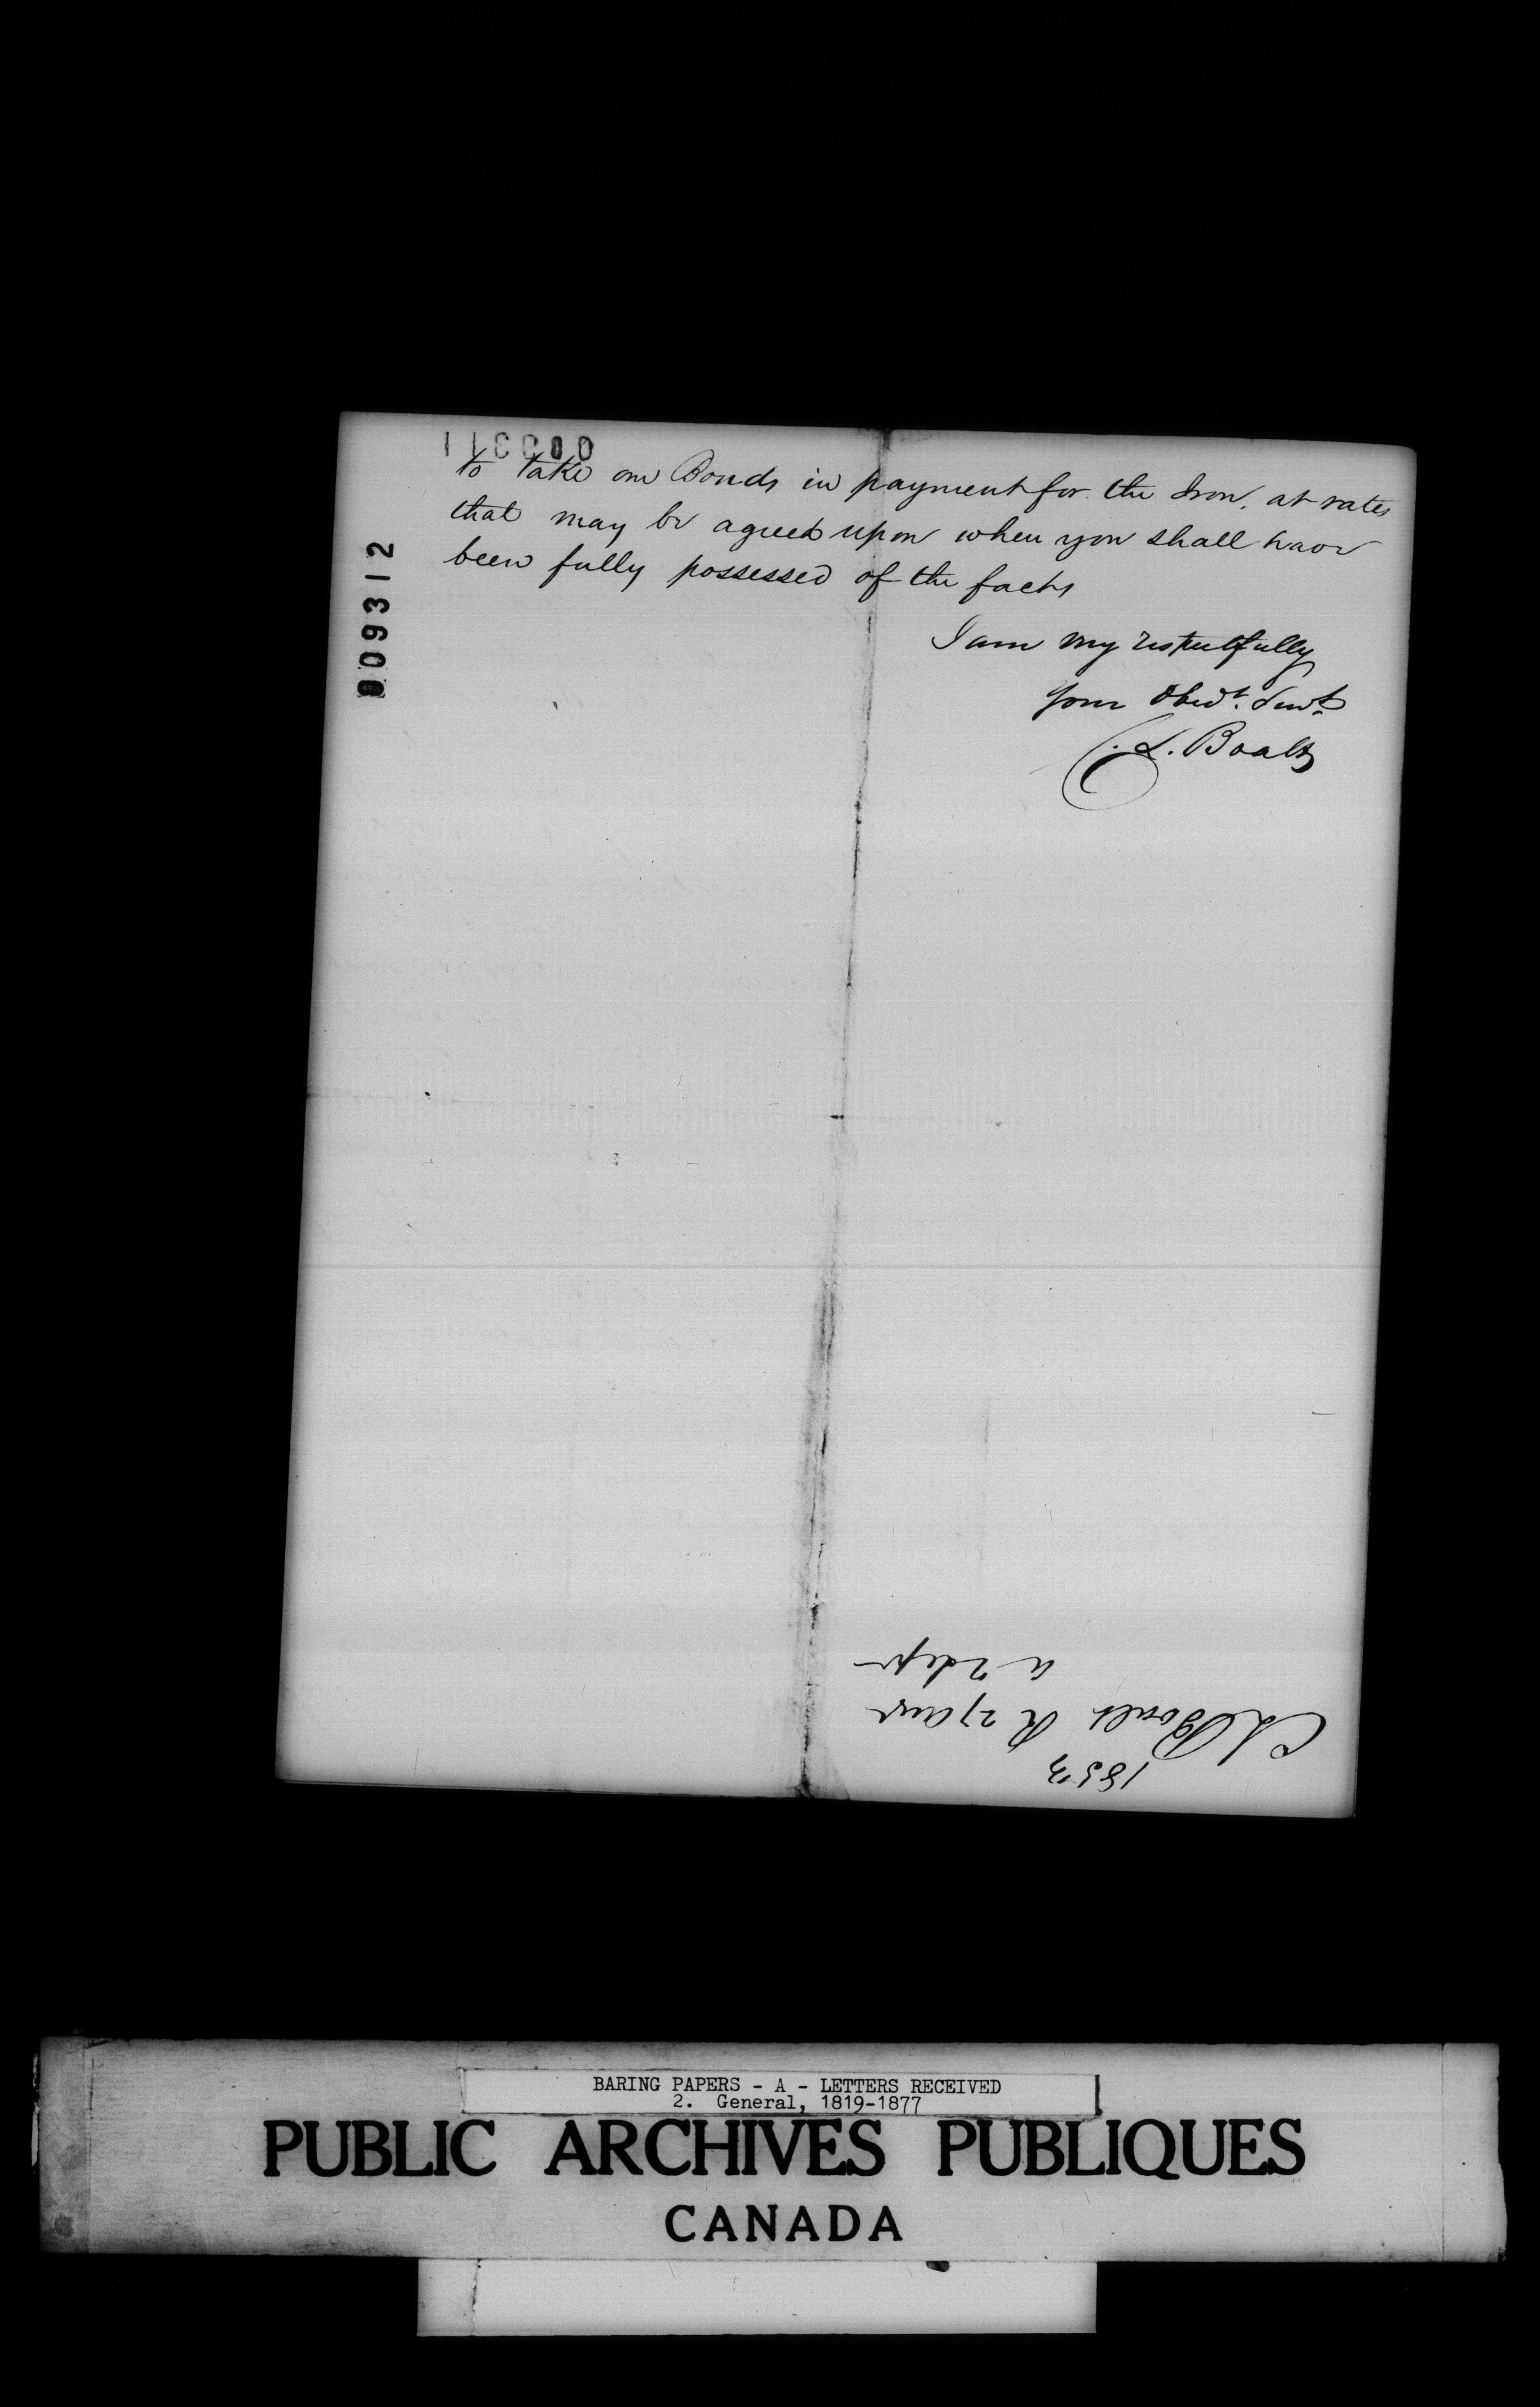 to take our Bonds in payment for the Iron, at rates
that may be agreed upon when you shall have
been fully possessed of the facts
I am very respectfully
Your Obedt. Servt.
C. L. Boalt
009312
1853
C L Boalt R 27 Aur
a 2 Sepr
BARING PAPERS - A - LETTERS RECEIVED
2. General, 1819-1877
PUBLIC ARCHIVES PUBLIQUES
CANADA